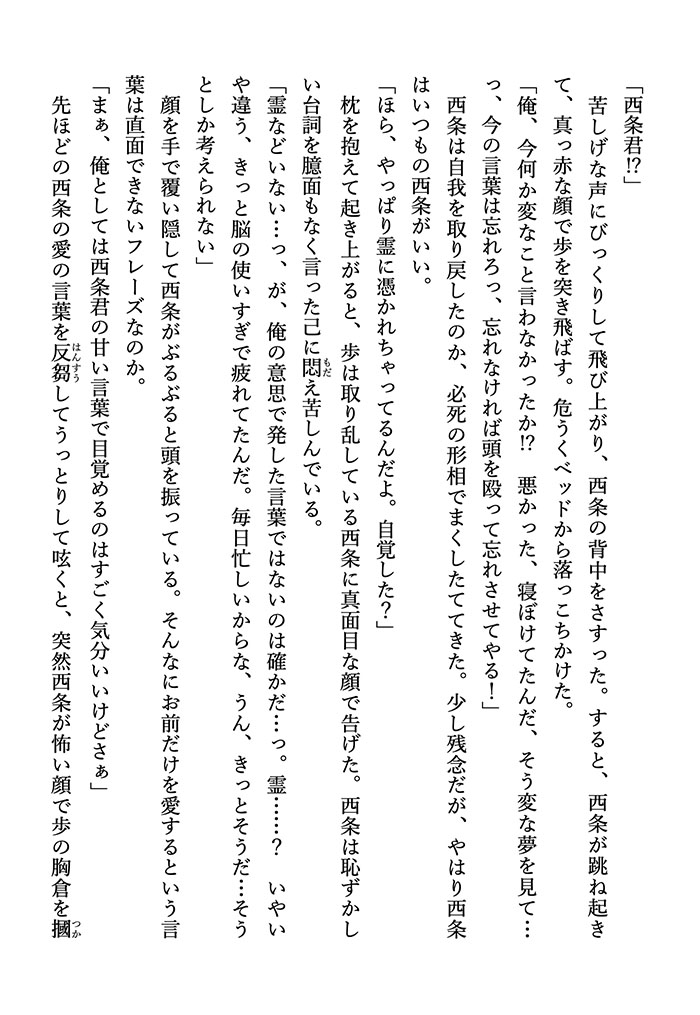 「西条君!?」
　苦しげな声にびっくりして飛び上がり、西条の背中をさすった。すると、西条が跳ね起き
て、真っ赤な顔で歩を突き飛ばす。危うくベッドから落っこちかけた。
「俺、今何か変なこと言わなかったか!?　悪かった、寝ぼけてたんだ、そう変な夢を見て…
っ、今の言葉は忘れろっ、忘れなければ頭を殴って忘れさせてやる！」
　西条は自我を取り戻したのか、必死の形相でまくしたててきた。少し残念だが、やはり西条
はいつもの西条がいい。
「ほら、やっぱり霊に憑かれちゃってるんだよ。自覚した？」
　枕を抱えて起き上がると、歩は取り乱している西条に真面目な顔で告げた。西条は恥ずかし
い台詞を臆面もなく言った己に悶もだえ苦しんでいる。
「霊などいない…っ、が、俺の意思で発した言葉ではないのは確かだ…っ。霊……？　いやい
や違う、きっと脳の使いすぎで疲れてたんだ。毎日忙しいからな、うん、きっとそうだ…そう
としか考えられない」
　顔を手で覆い隠して西条がぶるぶると頭を振っている。そんなにお前だけを愛するという言
葉は直面できないフレーズなのか。
「まぁ、俺としては西条君の甘い言葉で目覚めるのはすごく気分いいけどさぁ」
　先ほどの西条の愛の言葉を反芻はんすうしてうっとりして呟くと、突然西条が怖い顔で歩の胸倉を摑つか